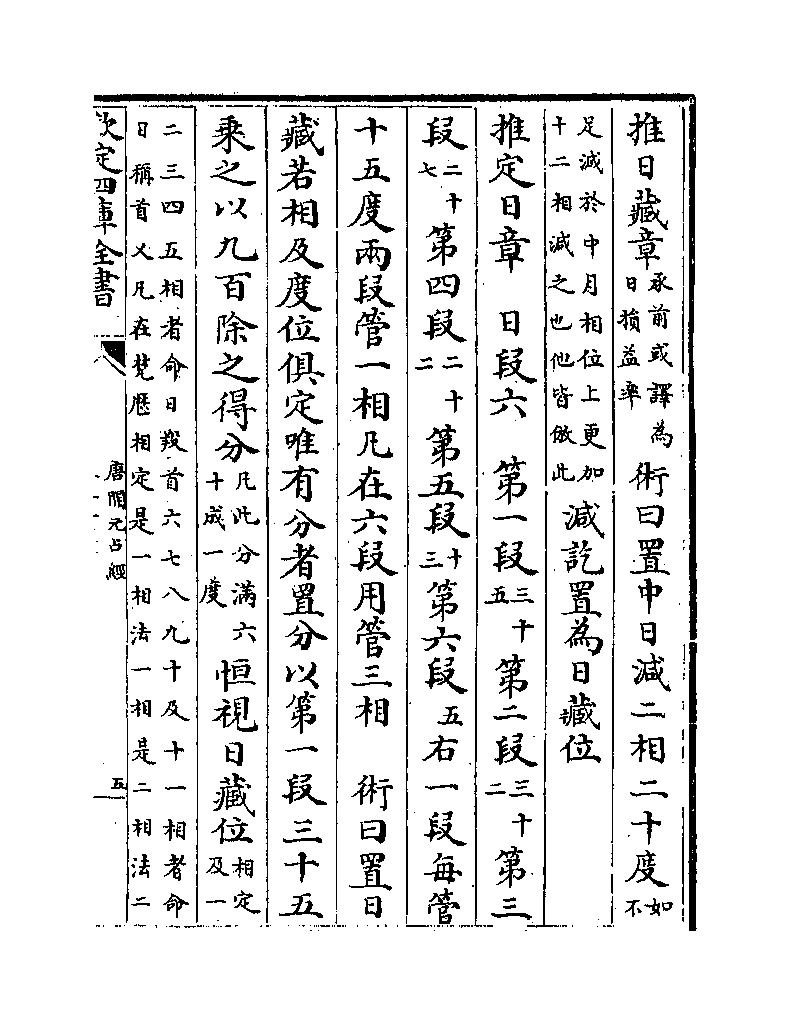 推日藏章承前或譯為日損益率術曰置中日減二相二十度如不
足減於中月相位上更加十二相減之也他皆倣此減訖置為日藏位
推定日章　日段六　第一段三十五第二段三十二第三
段二十七第四段二十二第五段十三第六段五右一段每管
十五度兩段管一相凡在六段用管三相　術曰置日
藏若相及度位俱定唯有分者置分以第一段三十五
乘之以九百除之得分凡此分滿六十成一度恒視日藏位相定及一
二三四五相者命日羖首六七八九十及十一相者命日稱首乂凡在梵歷相定是一相法一相是二相法二
欽定四庫全書
唐開元占經
五